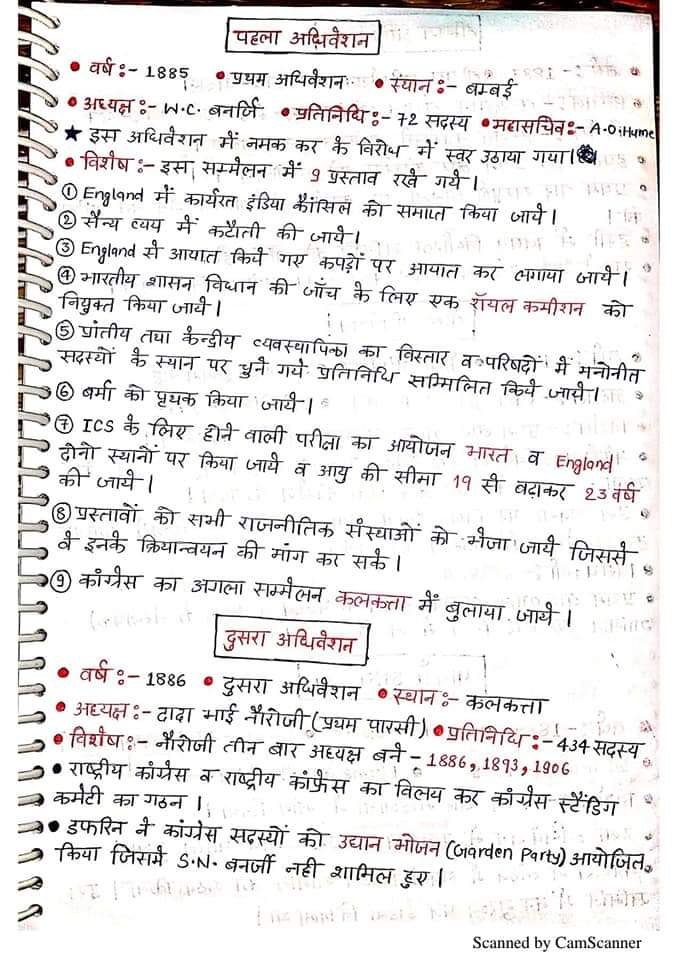 पहला अधिवेशन
• वर्ष :- 1885 • प्रथम अधिवेशन • स्थान :- बम्बई
• अध्यक्ष :- W.C. बनर्जि • प्रतिनिधि :- 72 सदस्य • महासचिव :- A.O. Hume
★ इस अधिवेशन में नमक कर के विरोध में स्वर उठाया गया।
• विशेष :- इस सम्मेलन में 9 प्रस्ताव रखे गये।
① England में कार्यरत इंडिया कौंसिल को समाप्त किया जाये।
② सैन्य व्यय में कटौती की जाये।
③ England से आयात किये गए कपड़ों पर आयात कर लगाया जाये।
④ भारतीय शासन विधान की जाँच के लिए एक रॉयल कमीशन को
नियुक्त किया जाये।
⑤ प्रांतीय तथा केन्द्रीय व्यवस्थापिका का विस्तार व परिषदों में मनोनीत
सदस्यों के स्थान पर चुने गये प्रतिनिधि सम्मिलित किये जाये।
⑥ बर्मा को पृथक किया जाये।
⑦ ICS के लिए होने वाली परीक्षा का आयोजन भारत व England
दोनो स्थानों पर किया जाये व आयु की सीमा 19 से बढाकर 23 वर्ष
की जाये।
⑧ प्रस्तावों को सभी राजनीतिक संस्थाओं को भेजा जाये जिससे
वे इनके क्रियान्वयन की मांग कर सके।
⑨ कांग्रेस का अगला सम्मेलन कलकत्ता में बुलाया जाये।
दुसरा अधिवेशन
• वर्ष :- 1886 • दुसरा अधिवेशन • स्थान :- कलकत्ता
• अध्यक्ष :- दादा भाई नौरोजी (प्रथम पारसी) • प्रतिनिधि :- 434 सदस्य
• विशेष :- नौरोजी तीन बार अध्यक्ष बने - 1886, 1893, 1906
• राष्ट्रीय कांग्रेस व राष्ट्रीय कांफ्रेस का विलय कर कांग्रेस स्टैंडिग
कमेटी का गठन।
• डफरिन ने कांग्रेस सदस्यों को उद्यान भोजन (Garden Party) आयोजित
किया जिसमें S.N. बनर्जी नही शामिल हुए।
Scanned by CamScanner